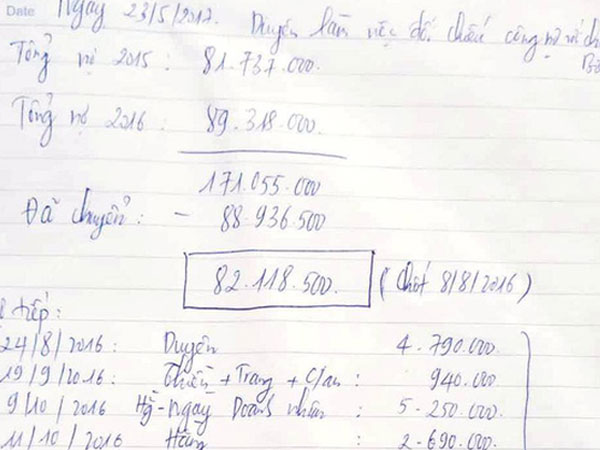 Date Ngày 23/5/2017. Duyên làm việc đối chiếu công nợ với
Tổng nợ 2015: 81.737.000.
Tổng nợ 2016: 89.318.000.
171.055.000
Đã chuyển: - 88.936.500
82.118.500. (chốt 8/8/2016)
tiếp:
24/8/2016: Duyên 4.790.000.
19/9/2016: Thiên + Trang + C/an: 940.000.
9/10/2016 Hg-Ngày Doanh nhân: 5.250.000.
11/10/2016 Hằng 2.690.000.